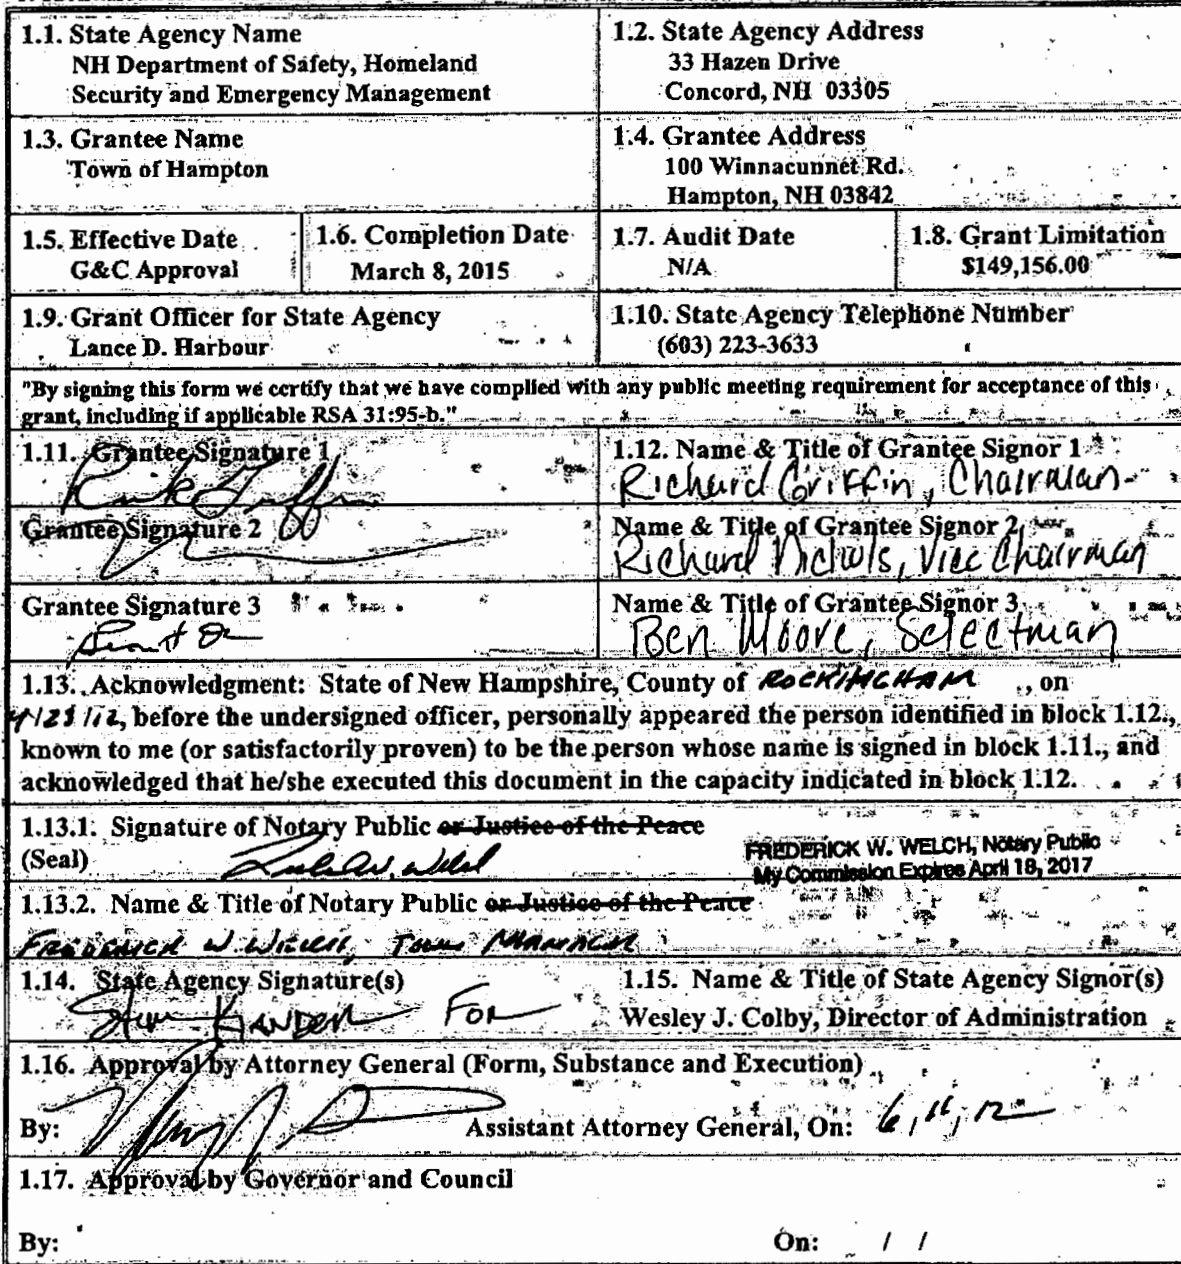 1.1. State Agency Name
NH Department of Safety, Homeland
Security and Emergency Management
1.2. State Agency Address
33 Hazen Drive
Concord, NH 03305
1.3. Grantee Name
Town of Hampton
1.4. Grantee Address
100 Winnacunnet Rd.
Hampton, NH 03842
1.5. Effective Date
G&C Approval
1.6. Completion Date
March 8, 2015
1.7. Audit Date
N/A
1.8. Grant Limitation
$149,156.00
1.9. Grant Officer for State Agency
Lance D. Harbour
1.10. State Agency Telephone Number
(603) 223-3633
"By signing this form we certify that we have complied with any public meeting requirement for acceptance of this
grant, including if applicable RSA 31:95-b."
1.11. Grantee Signature 1
1.12. Name & Title of Grantee Signor 1
Richard Griffin, Chairman
Grantee Signature 2
Name & Title of Grantee Signor 2
Richard Nichols, Vice Chairman
Grantee Signature 3
Name & Title of Grantee Signor 3
Ben Moore, Selectman
1.13. Acknowledgment: State of New Hampshire, County of ROCKINGHAM , on
/12, before the undersigned officer, personally appeared the person identified in block 1.12.,
known to me (or satisfactorily proven) to be the person whose name is signed in block 1.11., and
acknowledged that he/she executed this document in the capacity indicated in block 1.12.
1.13.1. Signature of Notary Public or Justice of the Peace
(Seal)
FREDERICK W. WELCH, Notary Public
My Commission Expires April 18, 2017
1.13.2. Name & Title of Notary Public or Justice of the Peace
FREDERICK W WELCH, TOWN MANAGER
1.14. State Agency Signature(s)
For
1.15. Name & Title of State Agency Signor(s)
Wesley J. Colby, Director of Administration
1.16. Approval by Attorney General (Form, Substance and Execution)
By:
Assistant Attorney General, On: 6, 11, 12
1.17. Approval by Governor and Council
By:
On: / /